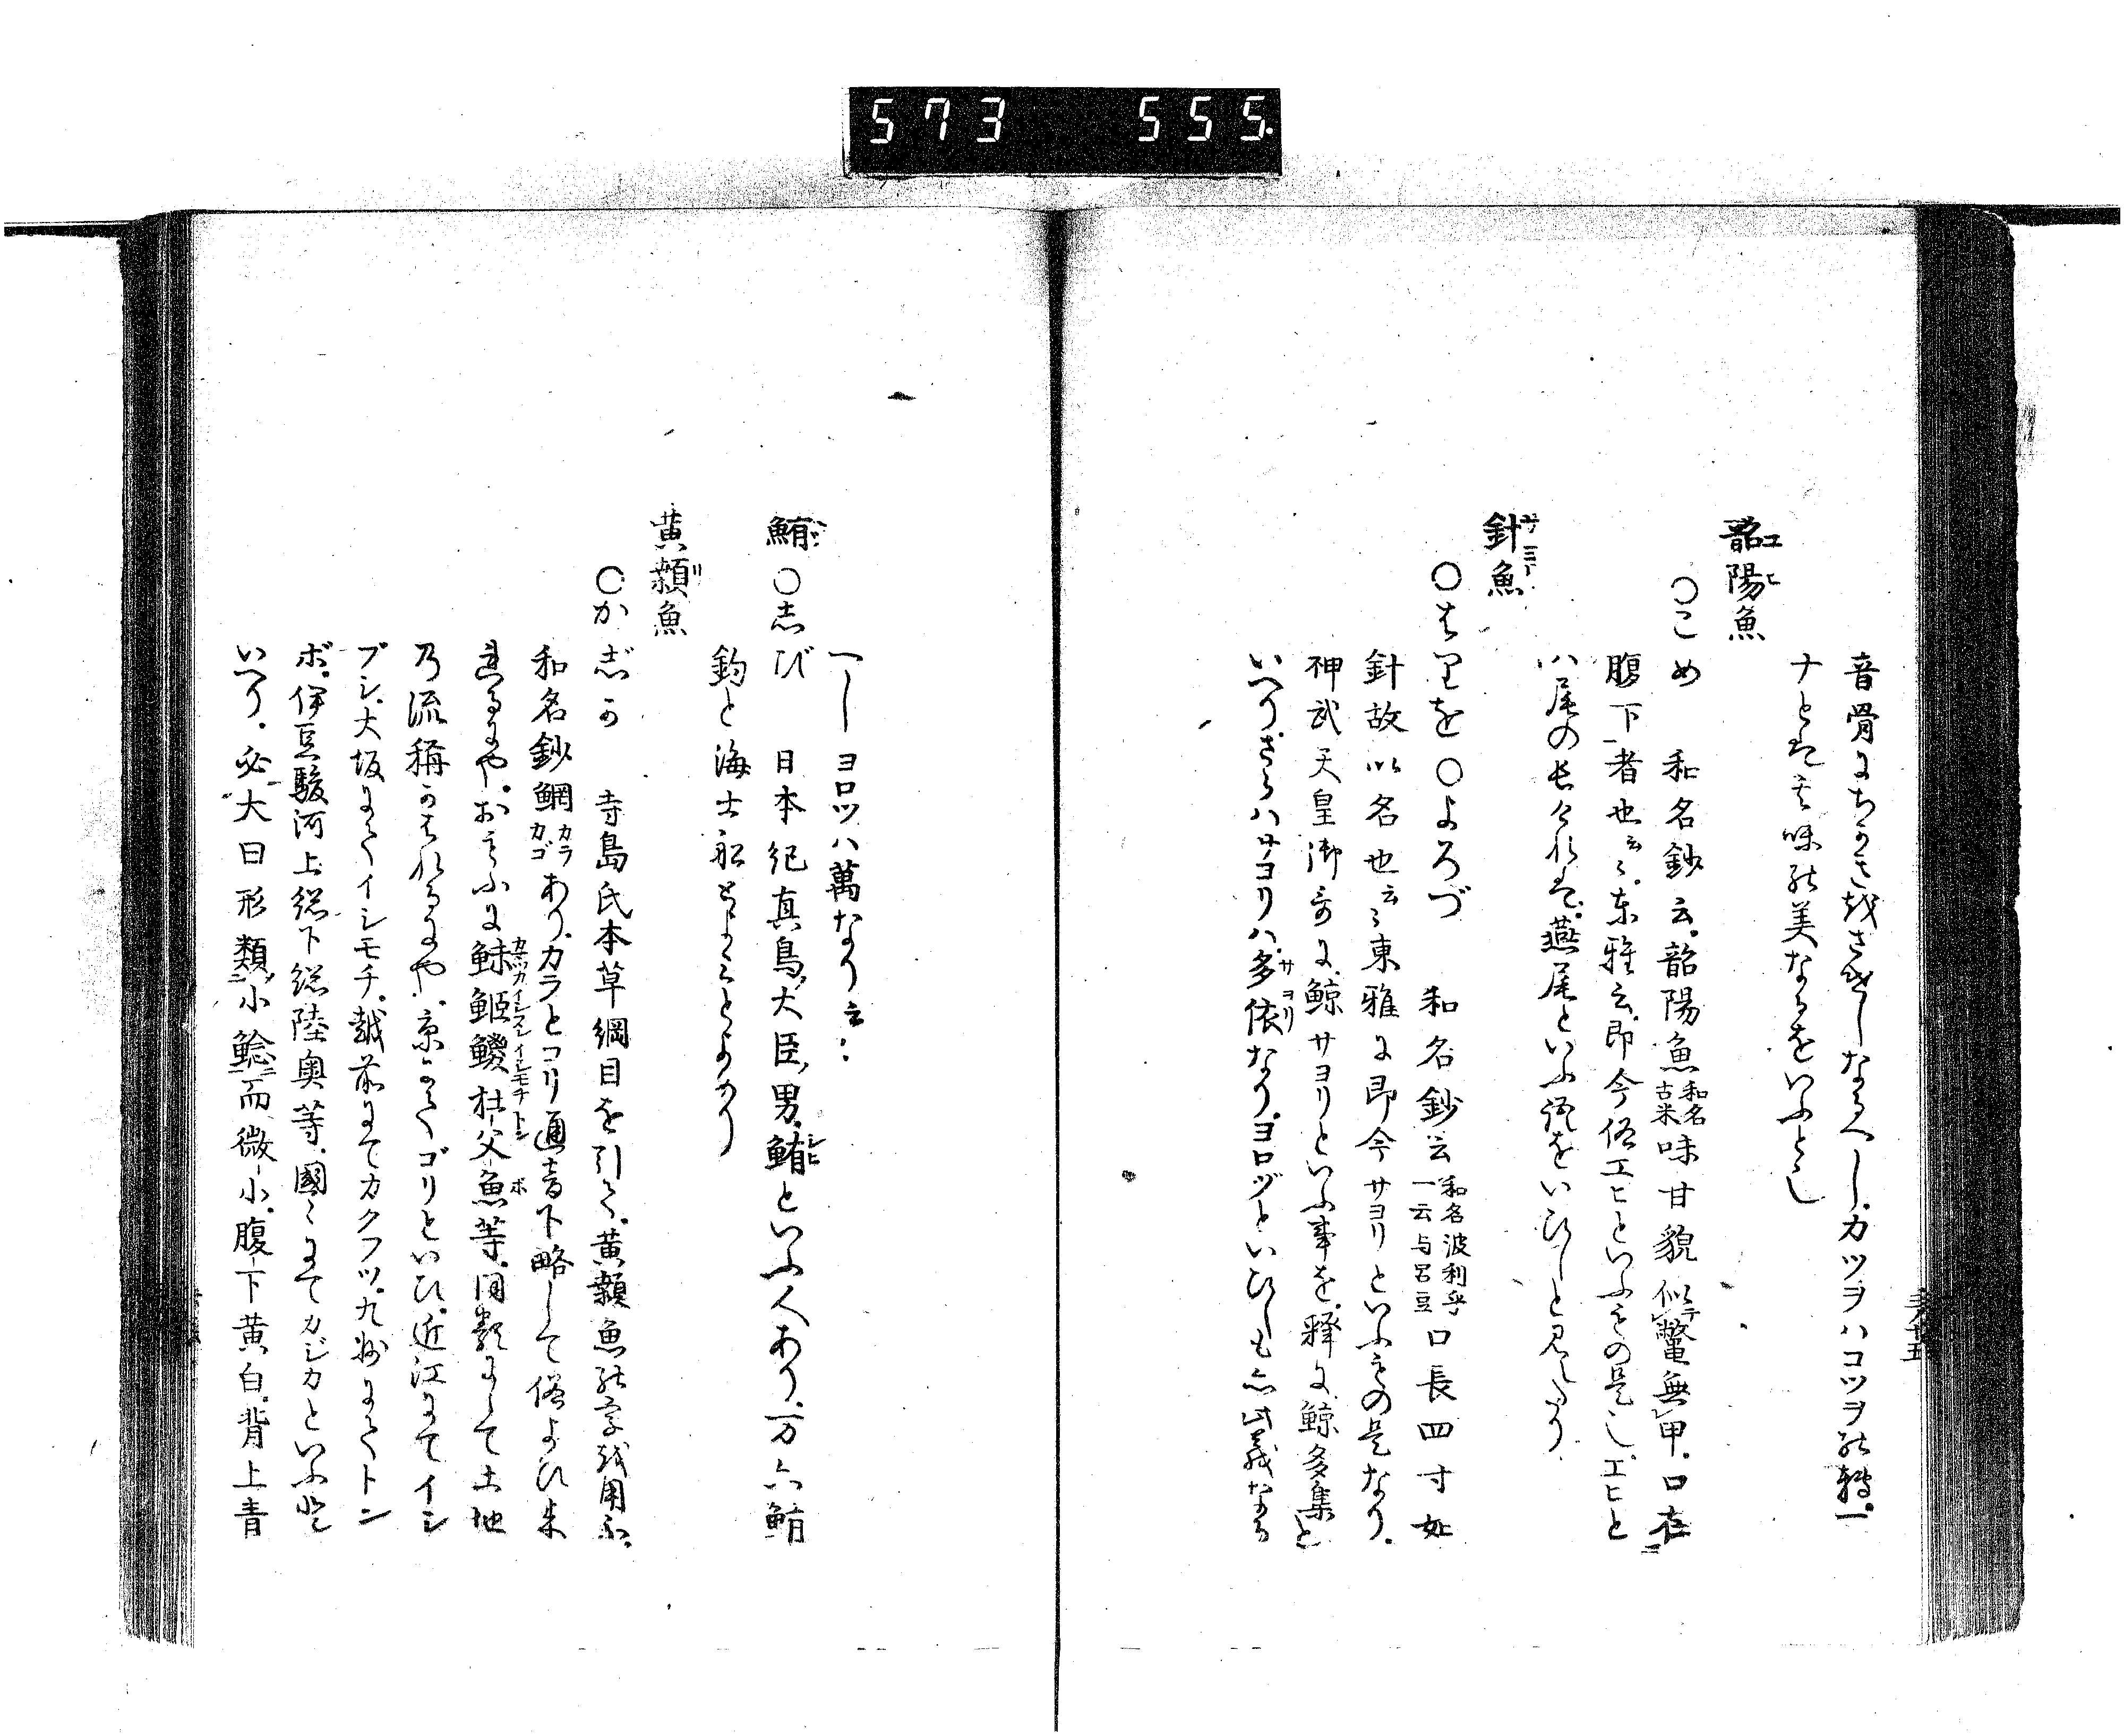 573 555.
音骨にちかきをさせしなるへし。カツヲハコツヲの轉。一
ナとは其味の美なるをいふとし
韶陽魚 エヒ
○こめ 和名鈔云。韶陽魚 和名古米 味甘貌似鼈無甲。口在
腹下者也云〻。东雅云。即今俗エヒといふもの是し。エヒと
ハ尾の長けれは。燕尾といふ說をいひしと見へたり
針魚
○はりを○よろづ 和名鈔云 和名波利乎 一云与呂豆 口長四寸如
針故以名也云〻東雅に即今サヨリといふもの是なり。
神武天皇御哥に。鯨サヨリといふ事を。釋に鯨多集と
いへり。さらハサヨリハ。多依なり。ヨロヅといひしも亦此義なる
へし ヨロツハ萬なり云〻
鮪 ○志び 日本紀真鳥大臣男。鮪といふ人あり。万六鮪
釣と海士船
黄顙魚
○か志か 寺島氏本草綱目を引て。黄顙魚の字を用ふ。
和名鈔䱍あり。カラとコリ通音下略して俗よひ来
れるにや。おもふに 杜父魚等。同類にして土地
乃流稱かはれるにや。京にてゴリといひ。近江にてイシ
ブシ。大坂にてイシモチ。越前にてカクフツ。九州にてトン
ボ。伊豆駿河上総下総陸奥等。國〻にてカジカといふ
いへり。必大曰形類小鯰而微小。腹下黄白。背上青